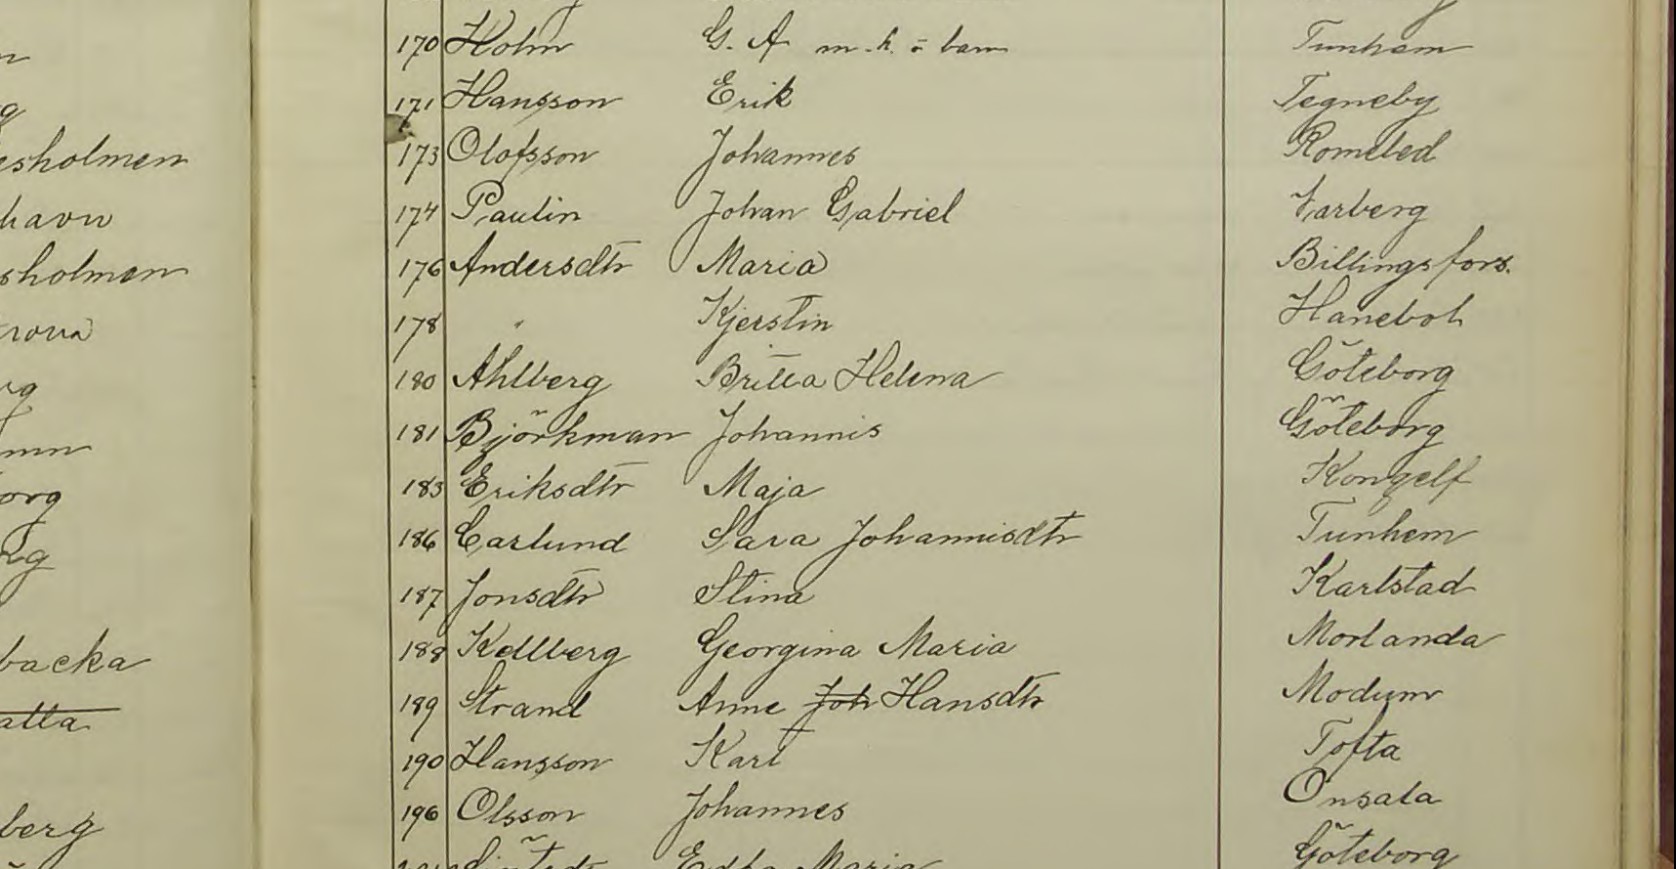 170 Holm G. A m. h. o barn Tunhem
171 Hansson Erik Tegneby
esholmen 173 Olofsson Johannes Romeled
havn 174 Paulin Johan Gabriel Varberg
sholmen 176 Andersdtr Maria Billingsfors.
178 " Kjerstin Hanebol
180 Ahlberg Britta Helena Göteborg
181 Björkman Johannis Göteborg
183 Eriksdtr Maja Kongelf
org 186 Carlund Sara Johannisdtr Tunhem
187 Jonsdtr Stina Karlstad
backa 188 Kellberg Georgina Maria Morlanda
atta 189 Strand Anne Joh Hansdtr Modum
190 Hansson Karl Tofta
berg 196 Olsson Johannes Onsala
Maria Göteborg